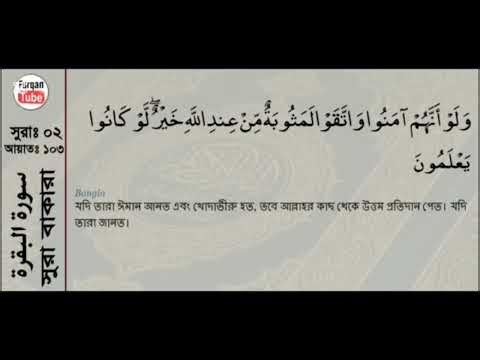 Furqan
Tube
সুরাঃ ০২
আয়াতঃ ১০৩
سورة البقرة
সুরা বাকারা
وَلَوْ أَنَّهُمْ آمَنُوا وَاتَّقَوْا لَمَثُوبَةٌ مِّنْ عِندِ اللَّهِ خَيْرٌ ۖ لَّوْ كَانُوا
يَعْلَمُونَ
Bangla
যদি তারা ঈমান আনত এবং খোদাভীরু হত, তবে আল্লাহর কাছ থেকে উত্তম প্রতিদান পেত। যদি
তারা জানত।